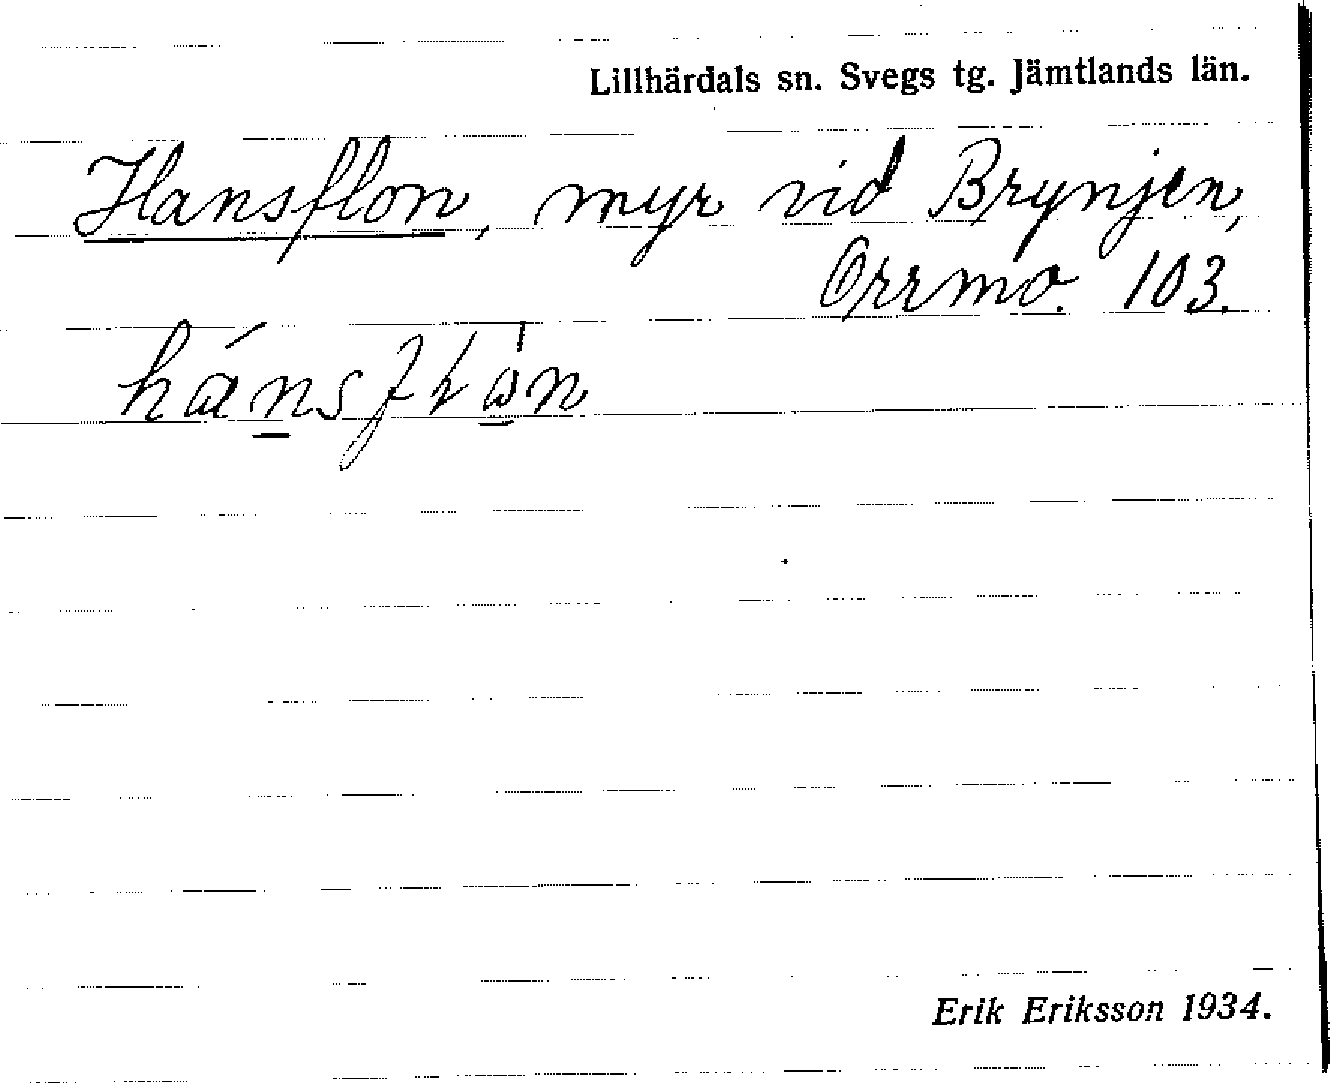 Lillhärdals sn. Svegs tg. Jämtlands län.
Hansflon, myr vid Brynjen,
Orrmo. 103.
Erik Eriksson 1934.